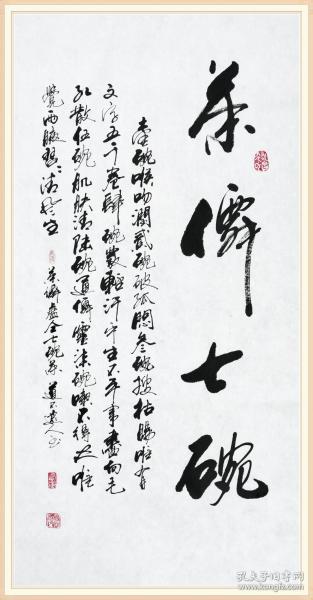 茶僊七碗
壹碗喉吻潤貳碗破孤悶叁碗搜枯腸唯有
文字五千卷肆碗發輕汗平生不平事盡向毛
孔散伍碗肌膚清陆碗通僊靈柒碗喫不得也唯
覺兩腋習〻清風生 茶僊盧仝七碗茶 道不遠人书
孔夫子旧书网
www.kongfz.com